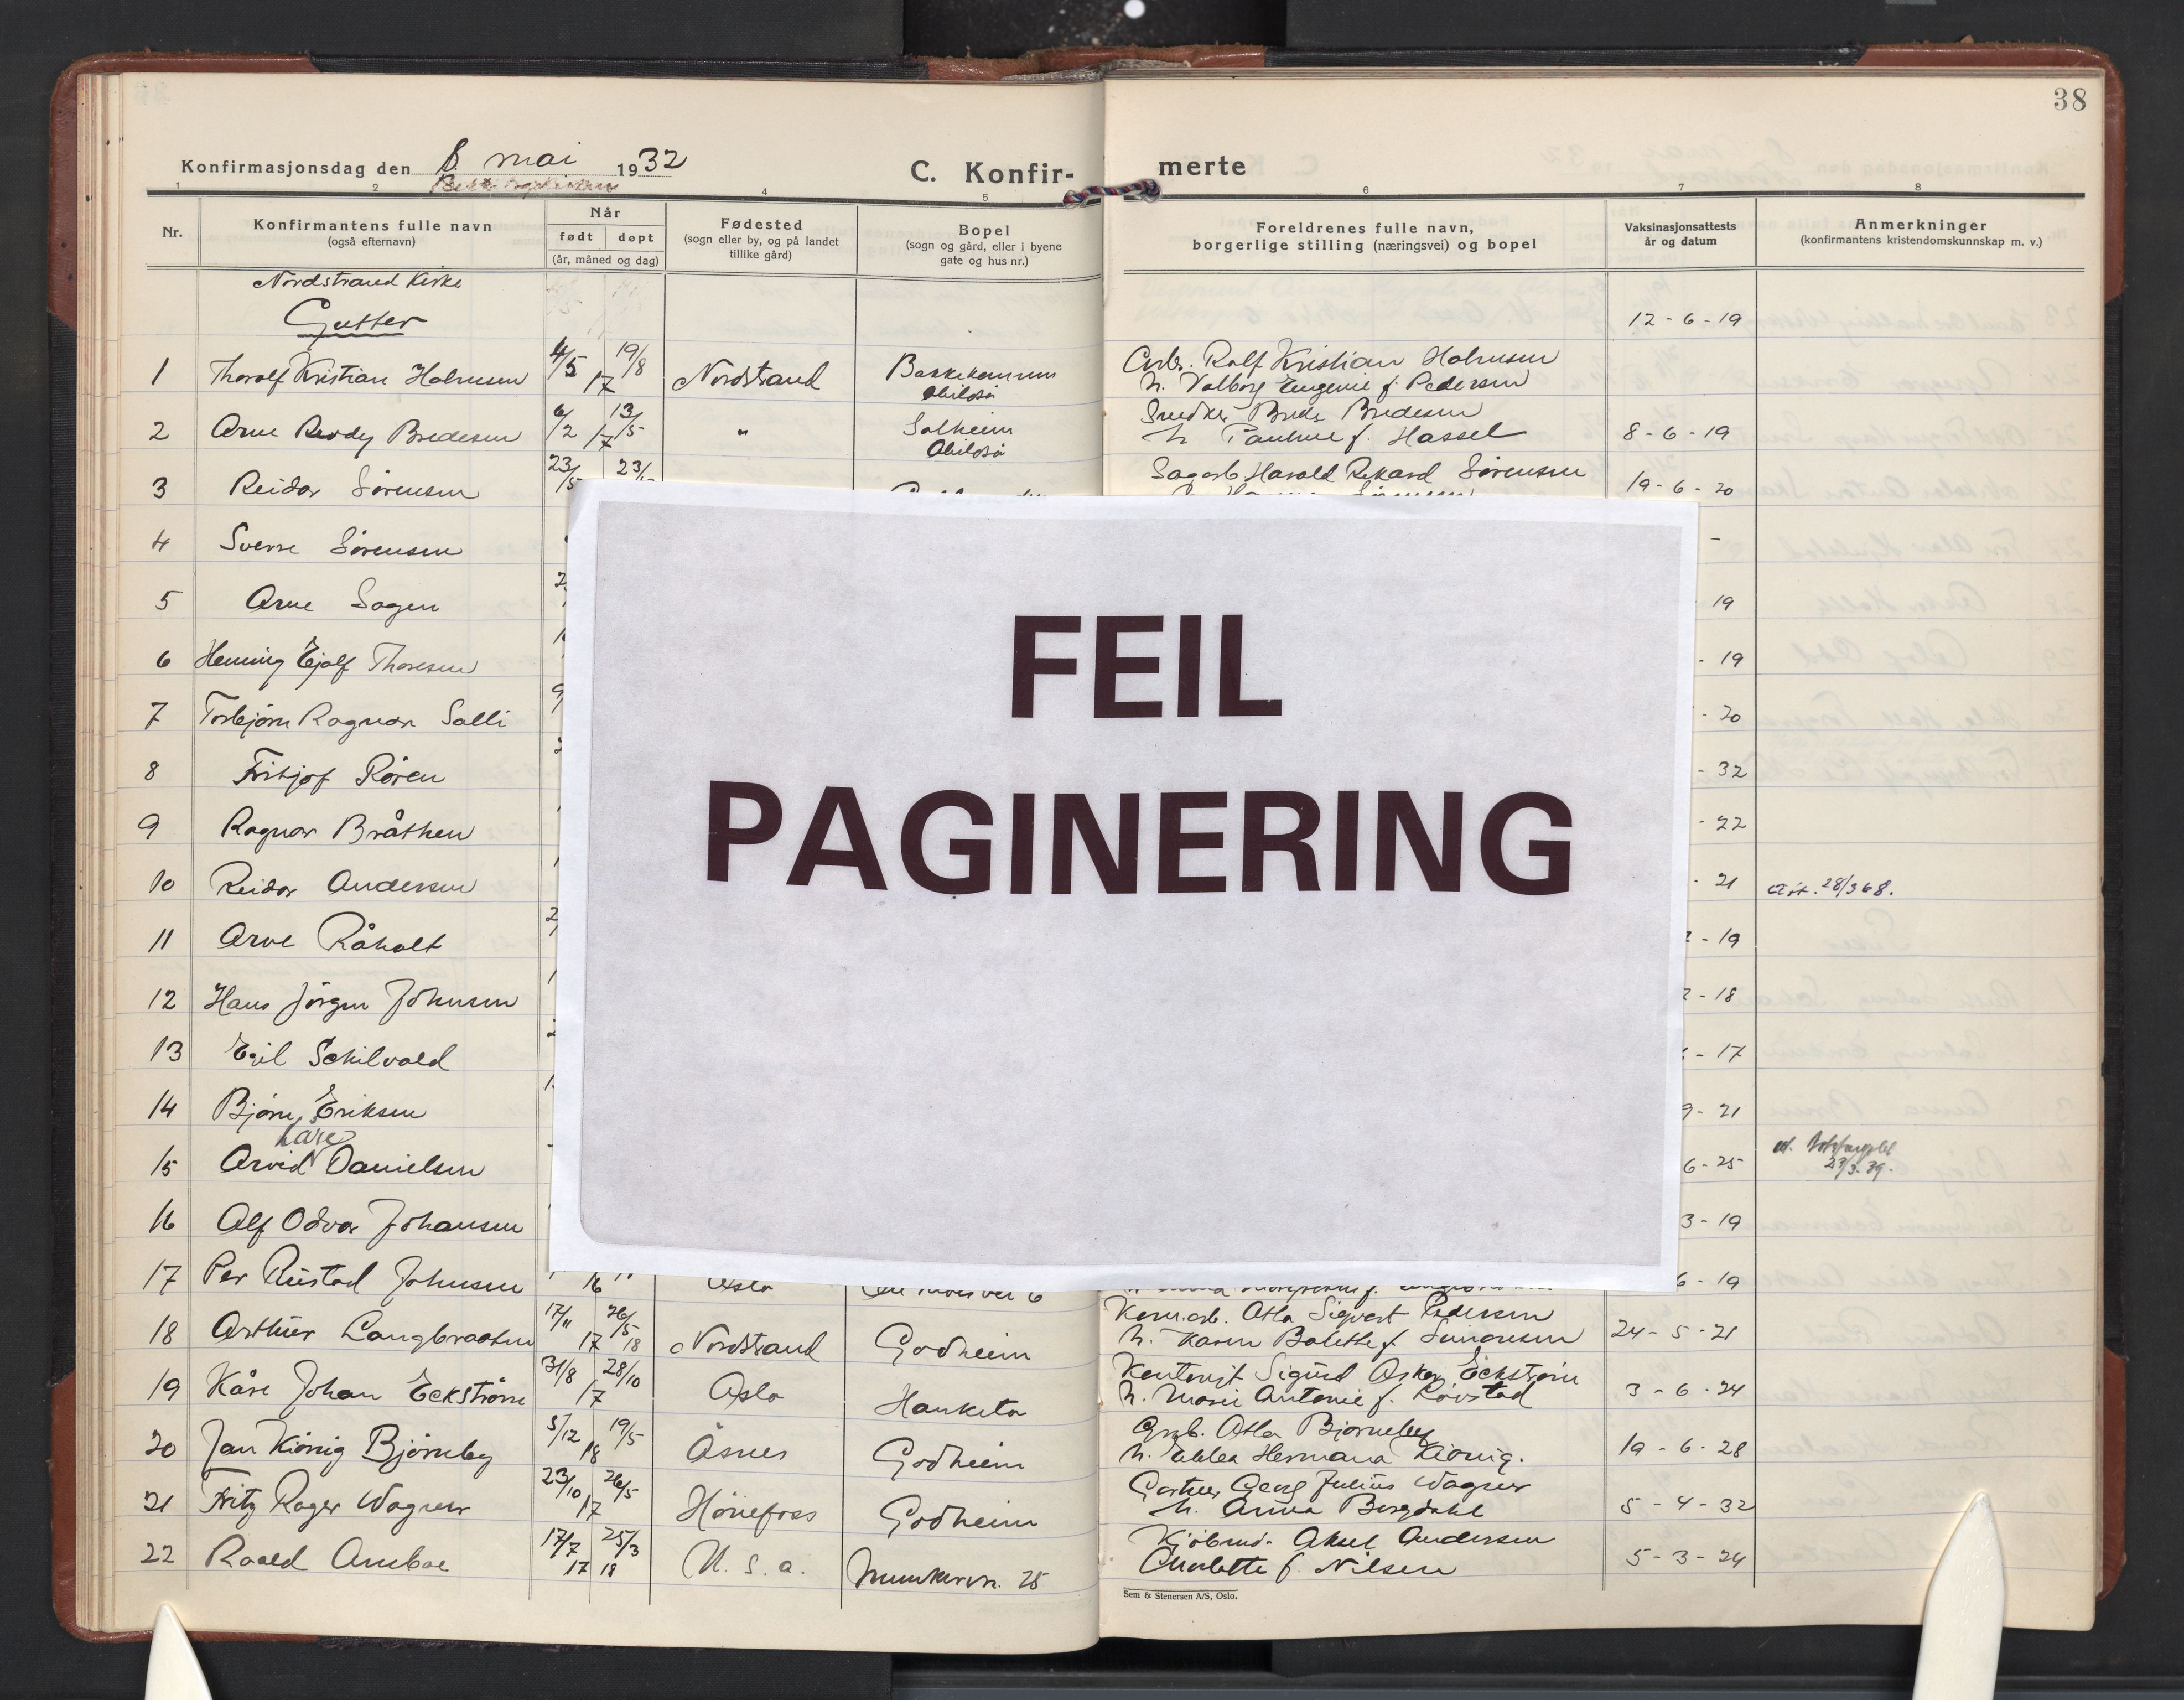 38
Konfirmasjonsdag den 8. mai 1932
C. Konfir-merte
1 2 4 5 6 7 8
Nr.
Konfirmantens fulle navn
(også efternavn)
Når
født døpt
(år, måned og dag)
Fødested
(sogn eller by, og på landet
tillike gård)
Bopel
(sogn og gård, eller i byene
gate og hus nr.)
Foreldrenes fulle navn,
borgerlige stilling (næringsvei) og bopel
Vaksinasjonsattests
år og datum
Anmerkninger
(konfirmantens kristendomskunnskap m. v.)
Nordstrand Kirke
Gutter
12-6-19
1 Thorolf Kristian Holmsen 4/5 19/8 17 Nordstrand
Arb. Rolf Kristian Holmsen
h. Valborg Eugenie f. Pedersen
2 Arne Reidy Bredesen 6/2 13/5 17 " Solheim
h Pauline f. Hassel 8-6-19
3 Reidar Sørensen 23/5 23/
Sagarb. Harald Rikard Sørensen 19-6-20
4 Sverre Sørensen -
5 Arne Sagen 19
6 Henning Ejolf Thoresen - 19
7 Torbjørn Ragnar Solli - 20
8 Fritjof Røren - 32
9 Ragnar Bråthen - 22
10 Reidar Andersen - 21 28/368.
11 Arve Råholt - 19
12 Hans Jørgen Johnsen 2-18
13 Egil Schilvold - 17
14 Bjørn Eriksen 9-21
Kåre
15 Arvid Danielsen 6-25
23/3.39.
16 Alf Odvar Johansen 3-19
17 Per Rustad Johnsen 16 Oslo 6-19
FEIL
PAGINERING
18 Arthur Langbraaten 17/11 26/5 17 18 Nordstrand Godheim
Atla Sigvart Pedersen
h. Karen Bolette f. Simonsen 24-5-21
19 Kåre Johan Eckstrøm 31/8 28/10 17 Oslo Hauketo
Kontorist Sigurd Oskar Eckstrøm
h. Marie Antonie f. Røvstad 3-6-24
20 Jan Kiønig Bjørneby 5/12 19/5 18 Åsnes Godheim
Grb. Atla Bjørneby
h. Ebba Hermana Kiønig. 19-6-28
21 Fritz Roger Wagner 23/10 26/5 17 Hønefoss Godheim
Gartner Georg Julius Wagner
h. Anna Bergdahl 5-4-32
22 Roald Amboe 17/7 25/3 17 18 U. S. a. Munkervn. 25
Kjøbmd. Aksel Andersen
Charlotte f. Nilsen 5-3-24
Sem & Stenersen A/S, Oslo.